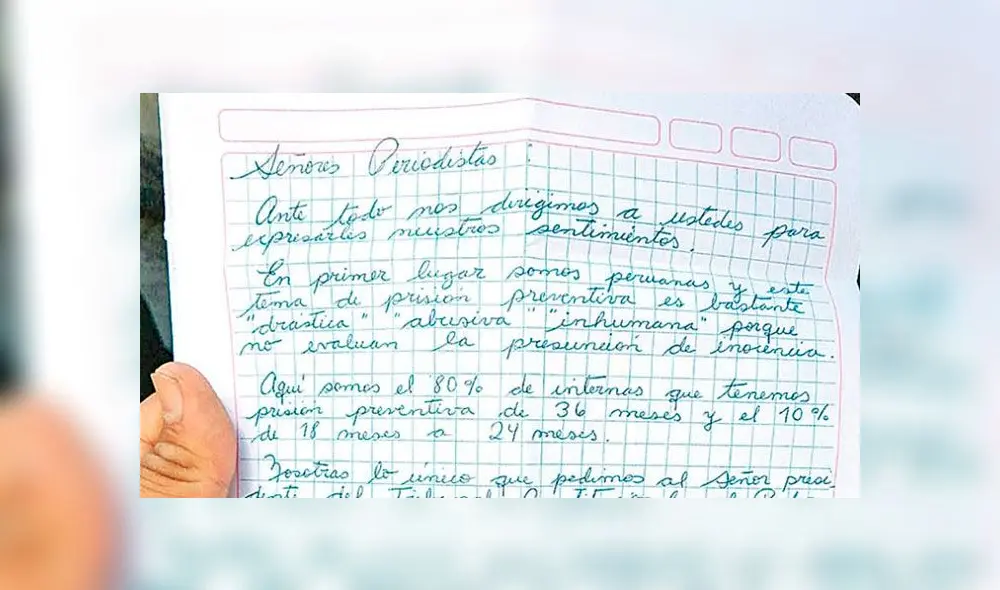 Señores Periodistas :
Ante todo nos dirigimos a ustedes para
expresarles nuestros sentimientos.
En primer lugar somos peruanas y este
tema de prisión preventiva es bastante
"drástica" "abusiva" "inhumana" porque
no evaluan la presunción de inocencia.
Aquí somos el 80% de internas que tenemos
prisión preventiva de 36 meses y el 10%
de 18 meses a 24 meses.
Nosotras lo único que pedimos al Señor presi
dente del Tribunal